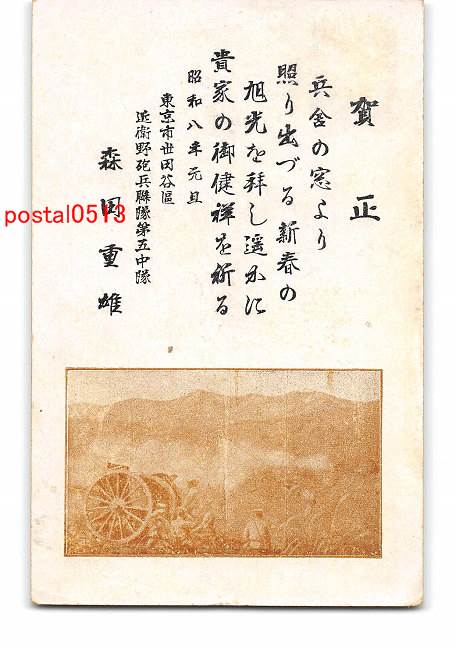 賀正
兵舎の窓より
照り出づる新春の
旭光を拝し遥かに
貴家の御健祥を祈る
昭和八年元旦
東京市世田谷區
近衛野砲兵聯隊第五中隊
森田重雄
postal0513